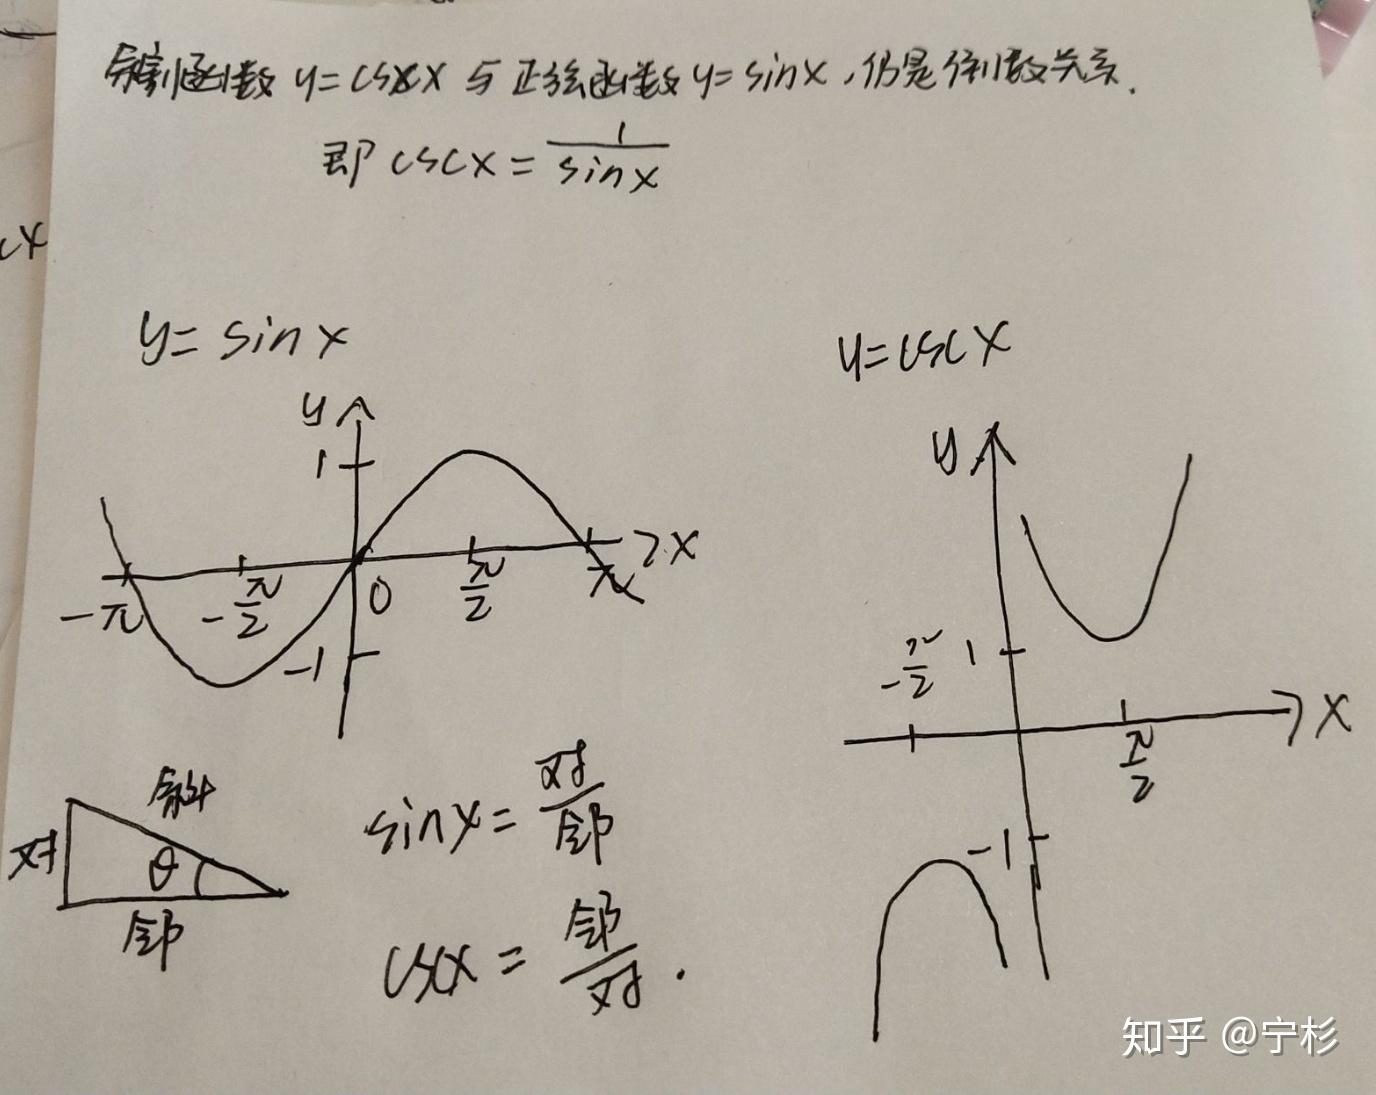 余割函数 y=cscx 与正弦函数 y=sinx，仍是倒数关系．
即 cscx = 1/sinx
cx
y= sinx
y=cscx
y
1
-π
-π/2
0
π/2
π
x
-1
y
1
-π/2
π/2
x
-1
斜
对
θ
邻
sinx= 对/邻
cscx = 邻/对．
知乎 @宁杉